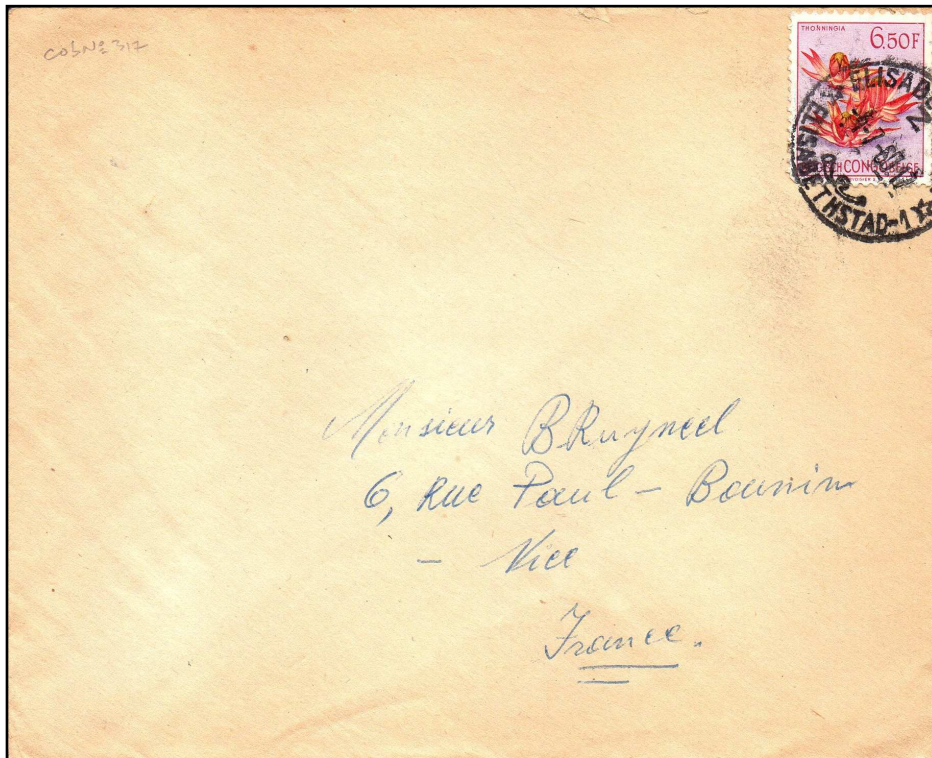 COB Nº 317
THONNINGIA
6.50F
CONGO BELGE
ELISABETHSTAD-1
Monsieur BRuyneel
6, Rue Paul - Bounin
- Nice
France.